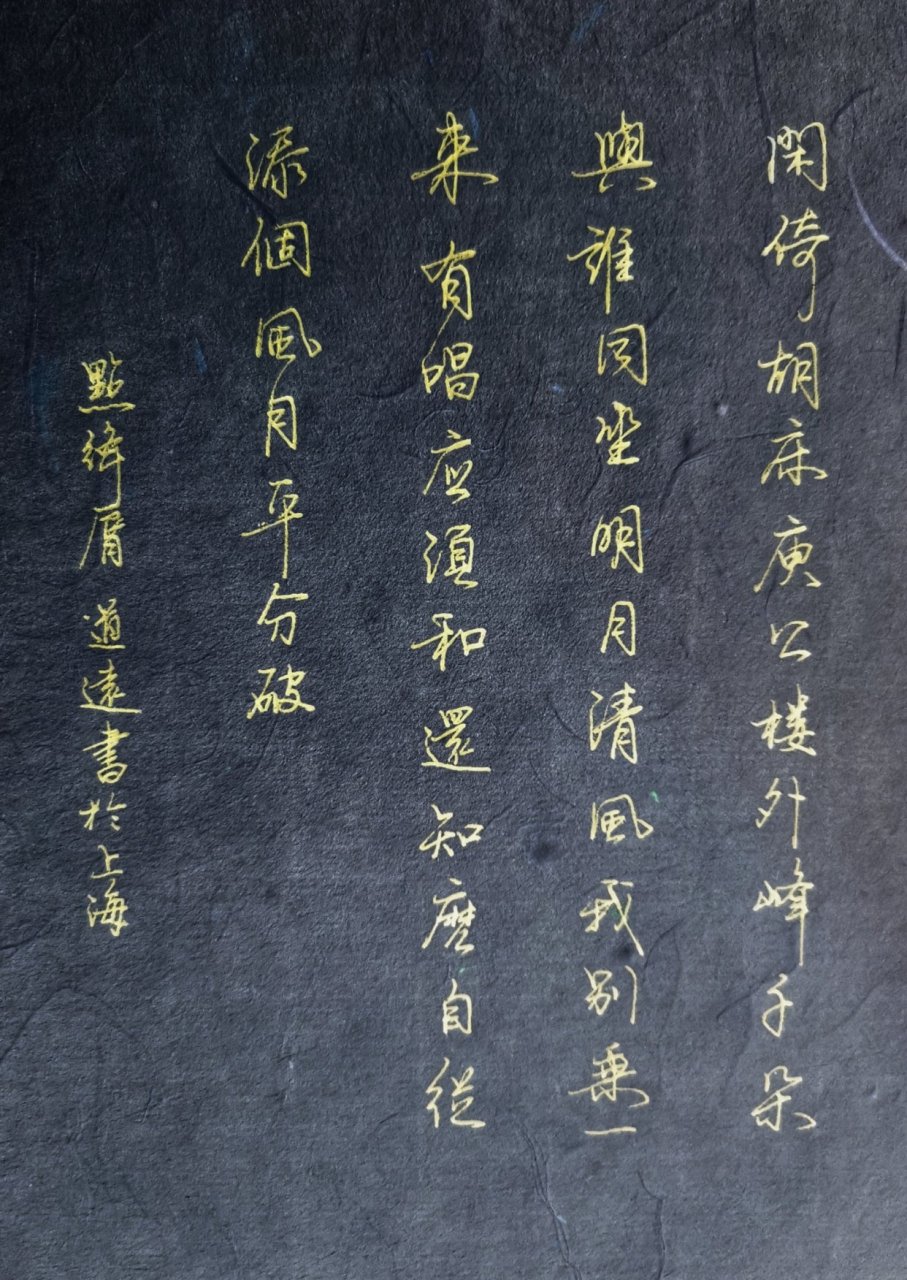 閑倚胡床庾公楼外峰千朵
與誰同坐明月清風我別乗一
来有唱应須和還知麽自從
添個風月平分破
點絳脣 道遠書於上海